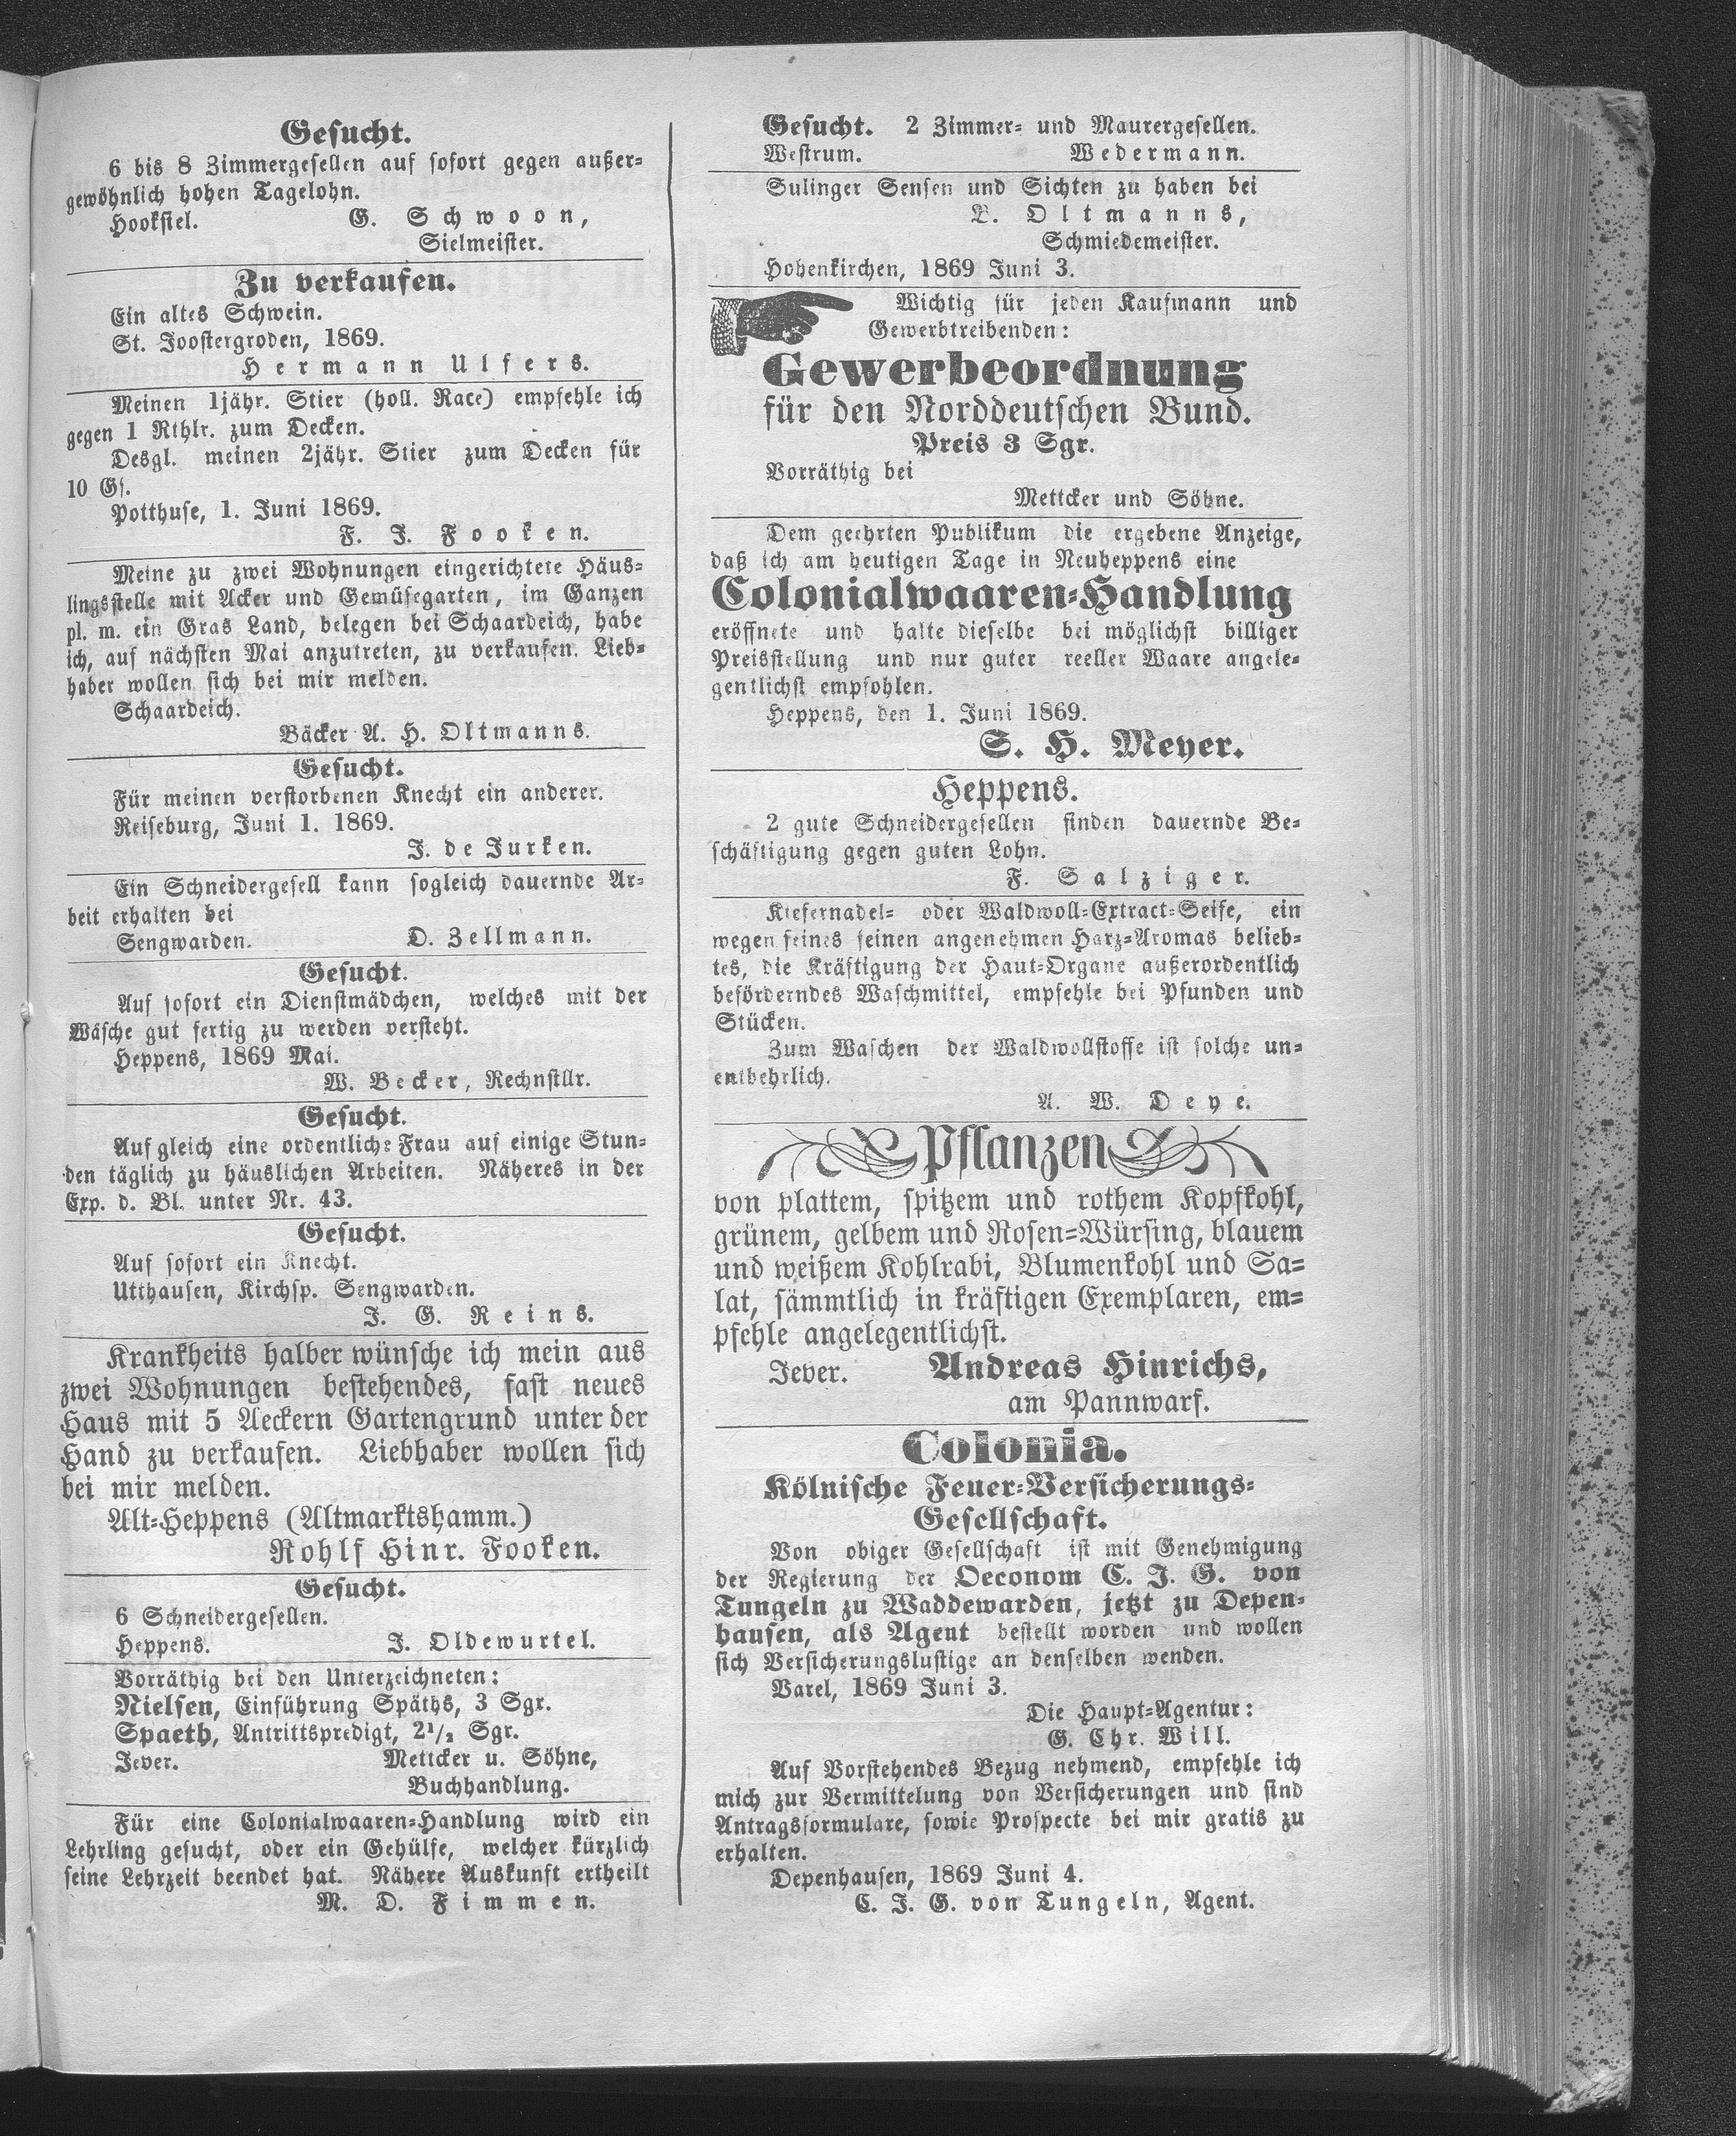 Gesucht.
6 bis 8 Zimmergesellen auf sofort gegen außer-
gewöhnlich hohen Tagelohn.
Hooksiel. G. Schwoon,
Sielmeister.
Zu verkaufen.
Ein altes Schwein.
St. Joostergroden, 1869.
Hermann Ulfers.
Meinen 1jähr. Stier (holl. Race) empfehle ich
gegen 1 Rthlr. zum Decken.
Desgl. meinen 2jähr. Stier zum Decken für
10 Gs.
Potthuse, 1. Juni 1869.
F. J. Fooken.
Meine zu zwei Wohnungen eingerichtete Häus-
lingsstelle mit Acker und Gemüsegarten, im Ganzen
pl. m. ein Gras Land, belegen bei Schaardeich, habe
ich, auf nächsten Mai anzutreten, zu verkaufen. Lieb-
haber wollen sich bei mir melden.
Schaardeich.
Bäcker A. H. Oltmanns.
Gesucht.
Für meinen verstorbenen Knecht ein anderer.
Reiseburg, Juni 1. 1869.
J. de Jurken.
Ein Schneidergesell kann sogleich dauernde Ar-
beit erhalten bei
Sengwarden. D. Zellmann.
Gesucht.
Auf sofort ein Dienstmädchen, welches mit der
Wäsche gut fertig zu werden versteht.
Heppens, 1869 Mai.
W. Becker, Rechnstllr.
Gesucht.
Auf gleich eine ordentliche Frau auf einige Stun-
den täglich zu häuslichen Arbeiten. Näheres in der
Exp. d. Bl. unter Nr. 43.
Gesucht.
Auf sofort ein Knecht.
Utthausen, Kirchsp. Sengwarden.
J. G. Reins.
Krankheits halber wünsche ich mein aus
zwei Wohnungen bestehendes, fast neues
Haus mit 5 Aeckern Gartengrund unter der
Hand zu verkaufen. Liebhaber wollen sich
bei mir melden.
Alt-Heppens (Altmarktshamm.)
Rohlf Hinr. Fooken.
Gesucht.
6 Schneidergesellen.
Heppens. J. Oldewurtel.
Vorräthig bei den Unterzeichneten:
Nielsen, Einführung Späths, 3 Sgr.
Spaeth, Antrittspredigt, 2½ Sgr.
Jever. Mettcker u. Söhne,
Buchhandlung.
Für eine Colonialwaaren-Handlung wird ein
Lehrling gesucht, oder ein Gehülfe, welcher kürzlich
seine Lehrzeit beendet hat. Nähere Auskunft ertheilt
M. D. Fimmen.
Gesucht. 2 Zimmer- und Maurergesellen.
Westrum. Wedermann.
Sulinger Sensen und Sichten zu haben bei
Oltmanns,
Schmiedemeister.
Hohenkirchen, 1869 Juni 3.
Wichtig für jeden Kaufmann und
Gewerbtreibenden:
Gewerbeordnung
für den Norddeutschen Bund.
Preis 3 Sgr.
Vorräthig bei
Mettcker und Söhne.
Dem geehrten Publikum die ergebene Anzeige,
daß ich am heutigen Tage in Neuheppens eine
Colonialwaaren-Handlung
eröffnete und halte dieselbe bei möglichst billiger
Preisstellung und nur guter reeller Waare angele-
gentlichst empfohlen.
Heppens, den 1. Juni 1869.
S. H. Meyer.
Heppens.
2 gute Schneidergesellen finden dauernde Be-
schäftigung gegen guten Lohn.
F. Salziger.
Kiefernadel- oder Waldwoll-Extract-Seife, ein
wegen seines feinen angenehmen Harz-Aromas belieb-
tes, die Kräftigung der Haut-Organe außerordentlich
beförderndes Waschmittel, empfehle bei Pfunden und
Stücken.
Zum Waschen der Waldwollstoffe ist solche un-
entbehrlich.
A. W. Deye.
Pflanzen
von plattem, spitzem und rothem Kopfkohl,
grünem, gelbem und Rosen-Würsing, blauem
und weißem Kohlrabi, Blumenkohl und Sa-
lat, sämmtlich in kräftigen Exemplaren, em-
pfehle angelegentlichst.
Jever. Andreas Hinrichs,
am Pannwarf.
Colonia.
Kölnische Feuer-Versicherungs-
Gesellschaft.
Von obiger Gesellschaft ist mit Genehmigung
der Regierung der Oeconom C. J. G. von
Tungeln zu Waddewarden, jetzt zu Depen-
hausen, als Agent bestellt worden und wollen
sich Versicherungslustige an denselben wenden.
Varel, 1869 Juni 3.
Die Haupt-Agentur:
G. Chr. Will.
Auf Vorstehendes Bezug nehmend, empfehle ich
mich zur Vermittelung von Versicherungen und sind
Antragsformulare, sowie Prospecte bei mir gratis zu
erhalten.
Depenhausen, 1869 Juni 4.
C. J. G. von Tungeln, Agent.